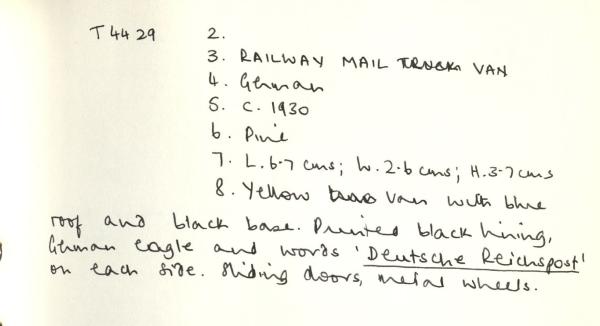 T 4429 2.
3. RAILWAY MAIL TRUCK VAN
4. German
5. C. 1930
6. Pine
7. L. 6-7 cms; W. 2-6 cms; H. 3-7 cms
8. Yellow van with blue
roof and black base. Printed black lining,
German eagle and words 'Deutsche Reichspost'
on each side. Sliding doors, metal wheels.